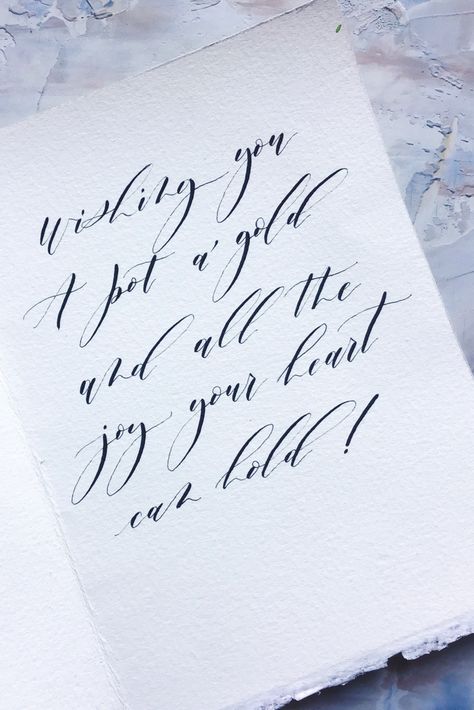 Wishing you
A pot a' gold
and all the
joy your heart
can hold!